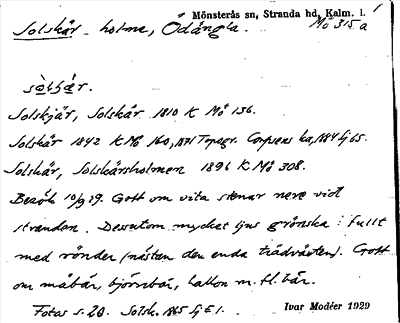 Mönsterås sn, Stranda hd, Kalm. l.
Solskär - holme, Ödängla. Mö 315 a
sòlʃær.
Solskjär, Solskär 1810 K Mö 156.
Solskär 1842 K Mö 160, 1871 Topogr. Corpsens ka, 1884 Ej 65.
Solskär, Solskärsholmen 1896 K Mö 308.
Besök 10/9 29. Gott om vita stenar nere vid
stranden. Dessutom mycket ljus grönska: fullt
med rönder (nästan den enda trädväxten). Gott
om måbär, björnbär, hallon m. fl. bär.
Fotas s. 20. Solsk. 1865 Ej E 1.
Ivar Modéer 1929